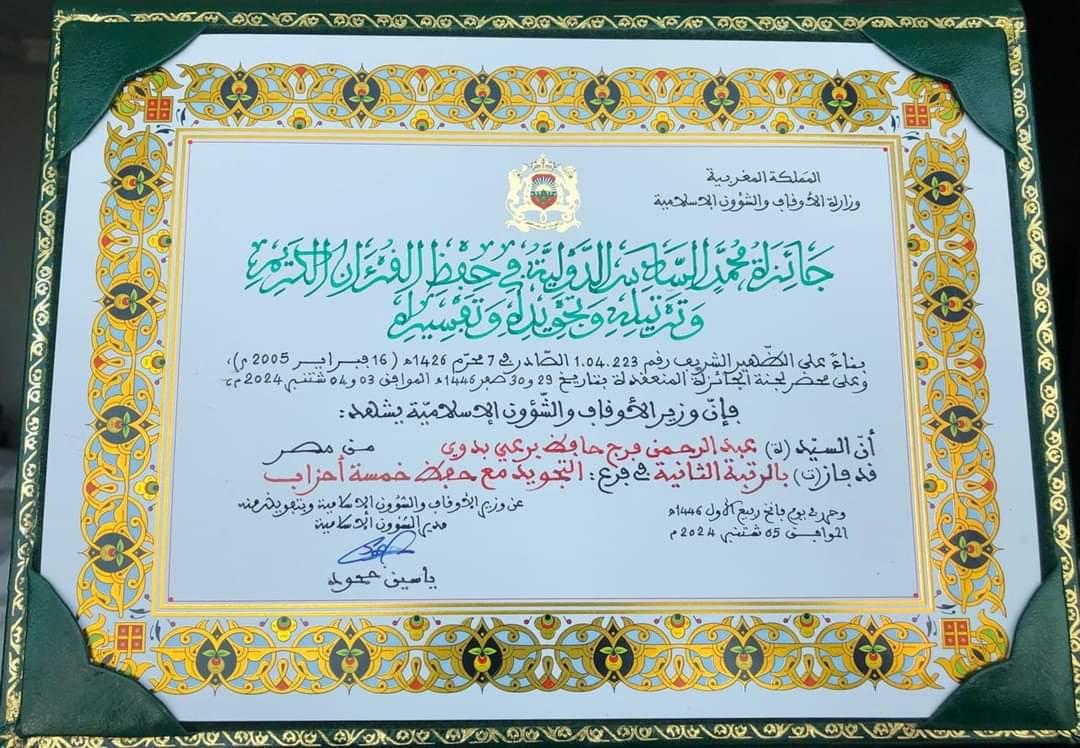 المملكة المغربية
وزارة الأوقاف والشؤون الإسلامية
جائزة محمد السادس الدولية في حفظ القرءان الكريم
وترتيله وتجويده وتفسيره
بناء على الظهير الشريف رقم 1.04.223 الصادر في 7 محرم 1426ه ( 16 فبراير 2005 م)،
وعلى محضر لجنة الجائزة المنعقدة بتاريخ 29 و 30 صفر 1446ه الموافق 03 و 04 شتنبر 2024م،
فإن وزير الأوقاف والشؤون الإسلامية يشهد:
أن السيد (ة) عبد الرحمن فرج حافظ بدوي من مصر
قد فاز(ت) بالرتبة الثانية في فرع: التجويد مع حفظ خمسة أحزاب
وحرر في يوم فاتح ربيع الأول 1446ه
الموافق 05 شتنبر 2024 م
عن وزير الأوقاف والشؤون الإسلامية وبتفويض منه
مدير الشؤون الإسلامية
ياسين